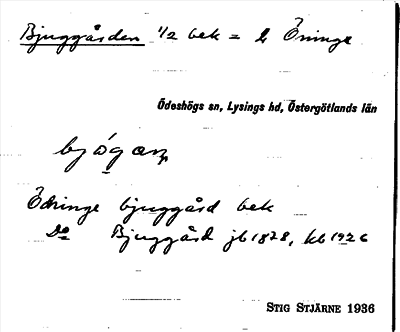 Bjuggården 1/2 bek = L Öninge
Ödeshögs sn, Lysings hd, Östergötlands län
bjógan
Öninge bjuggård bek
Do Bjuggård jb 1878, kb 1926
STIG STJÄRNE 1936